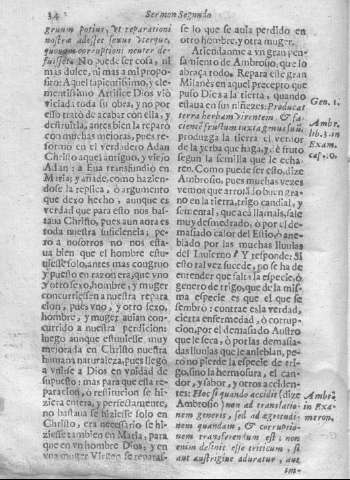 34 Sermon Segundo
gruum potius, et reparationi
nostra adesset sexus vterque,
quorum corruptioni neuter de-
fuisset. No puede ser cosa, ni
mas dulce, ni mas a mi propo-
sito: Aquel sapientissimo, y cle-
mentissimo Artifice Dios viò
viciada toda su obra, y no por
esso tratò de acabar con ella, y
destruilla, antes bien la reparò
con muchas mejoras, pues re-
formo en el verdadero Adan
Christo aquel antiguo, y viejo
Adan: a Eua transfundio en
Maria; y añade, como hazien-
dose la replica, ò argumento
que dexo hecho, aunque es
verdad que para esto nos bas-
taua Christo, pues aun aora es
toda nuestra suficiencia; pe-
ro a nosotros no nos esta-
ua bien que el hombre estu-
uiesse solo, antes mas congruo
y puesto en razon era, que vno
y otro sexo, hombre, y muger
concurriessen a nuestra repara
cion, pues vno, y otro sexo,
hombre, y muger auian con-
currido a nuestra perdicion:
luego aunque estuuiesse muy
mejorada en Christo nuestra
humana naturaleza, pues llegò
a vnirse a Dios en vnidad de
supuesto: mas para que esta re-
paracion, ò restitucion se hi-
ziera entera, y perfectamente,
no bastaua se hiziesse solo en
Christo, era necessario se hi-
ziesse tambien en Maria, para
que en vn hombre Dios, y en
vna muger Virgen se reparas-
se lo que se auia perdido en
otro hombre, y otra muger.
Atiendanme a vn gran pen-
samiento de Ambrosio, que lo
abraça todo. Repara este gran
Milanès en aquel precepto que
puso Dios a la tierra, quando
estaua en sus niñezes: Producat
terra herbam virentem & fa-
ciens fructum iuxta genus suum,
produzga la tierra el verdor
de la yerba que haga, y dè fruto
segun la semilla que le echa-
ren. Como puede ser esto, dize
Ambrosio, pues muchas vezes
vemos que arrojado buen gra-
no en la tierra, trigo candial, y
sementeral, que acà llamais, sale
muy desmedrado, ò por el de-
masiado calor del Estio, ò ane-
blado por las muchas lluuias
del Inuierno? Y responde: Si
esto tal vez sucede, no se ha de
entender que falta la especie, ò
genero de trigo, que de la mis-
ma especie es que el que se
sembrò: contrae esta verdad,
cierta enfermedad, ò corrup-
cion, por el demasiado Austro
que le seca, ò por las demasia-
das lluuias que le anieblan, pe-
ro no pierde la especie de tri-
go, sino la hermosura, el can-
dor, y sabor, y otros acciden-
tes: Hoc si quando accidit (dize
Ambrosio) non ad translatio-
nem generis, sed ad aegritudi-
nem quandam, & corruptio-
nem transferendum est; non
enim desinit esse triticum, si
aut austrigine aduratur, aut
im-
Gen. 1.
Ambr.
lib. 3. in
Exam.
Ambr.
in Exa-
meron.